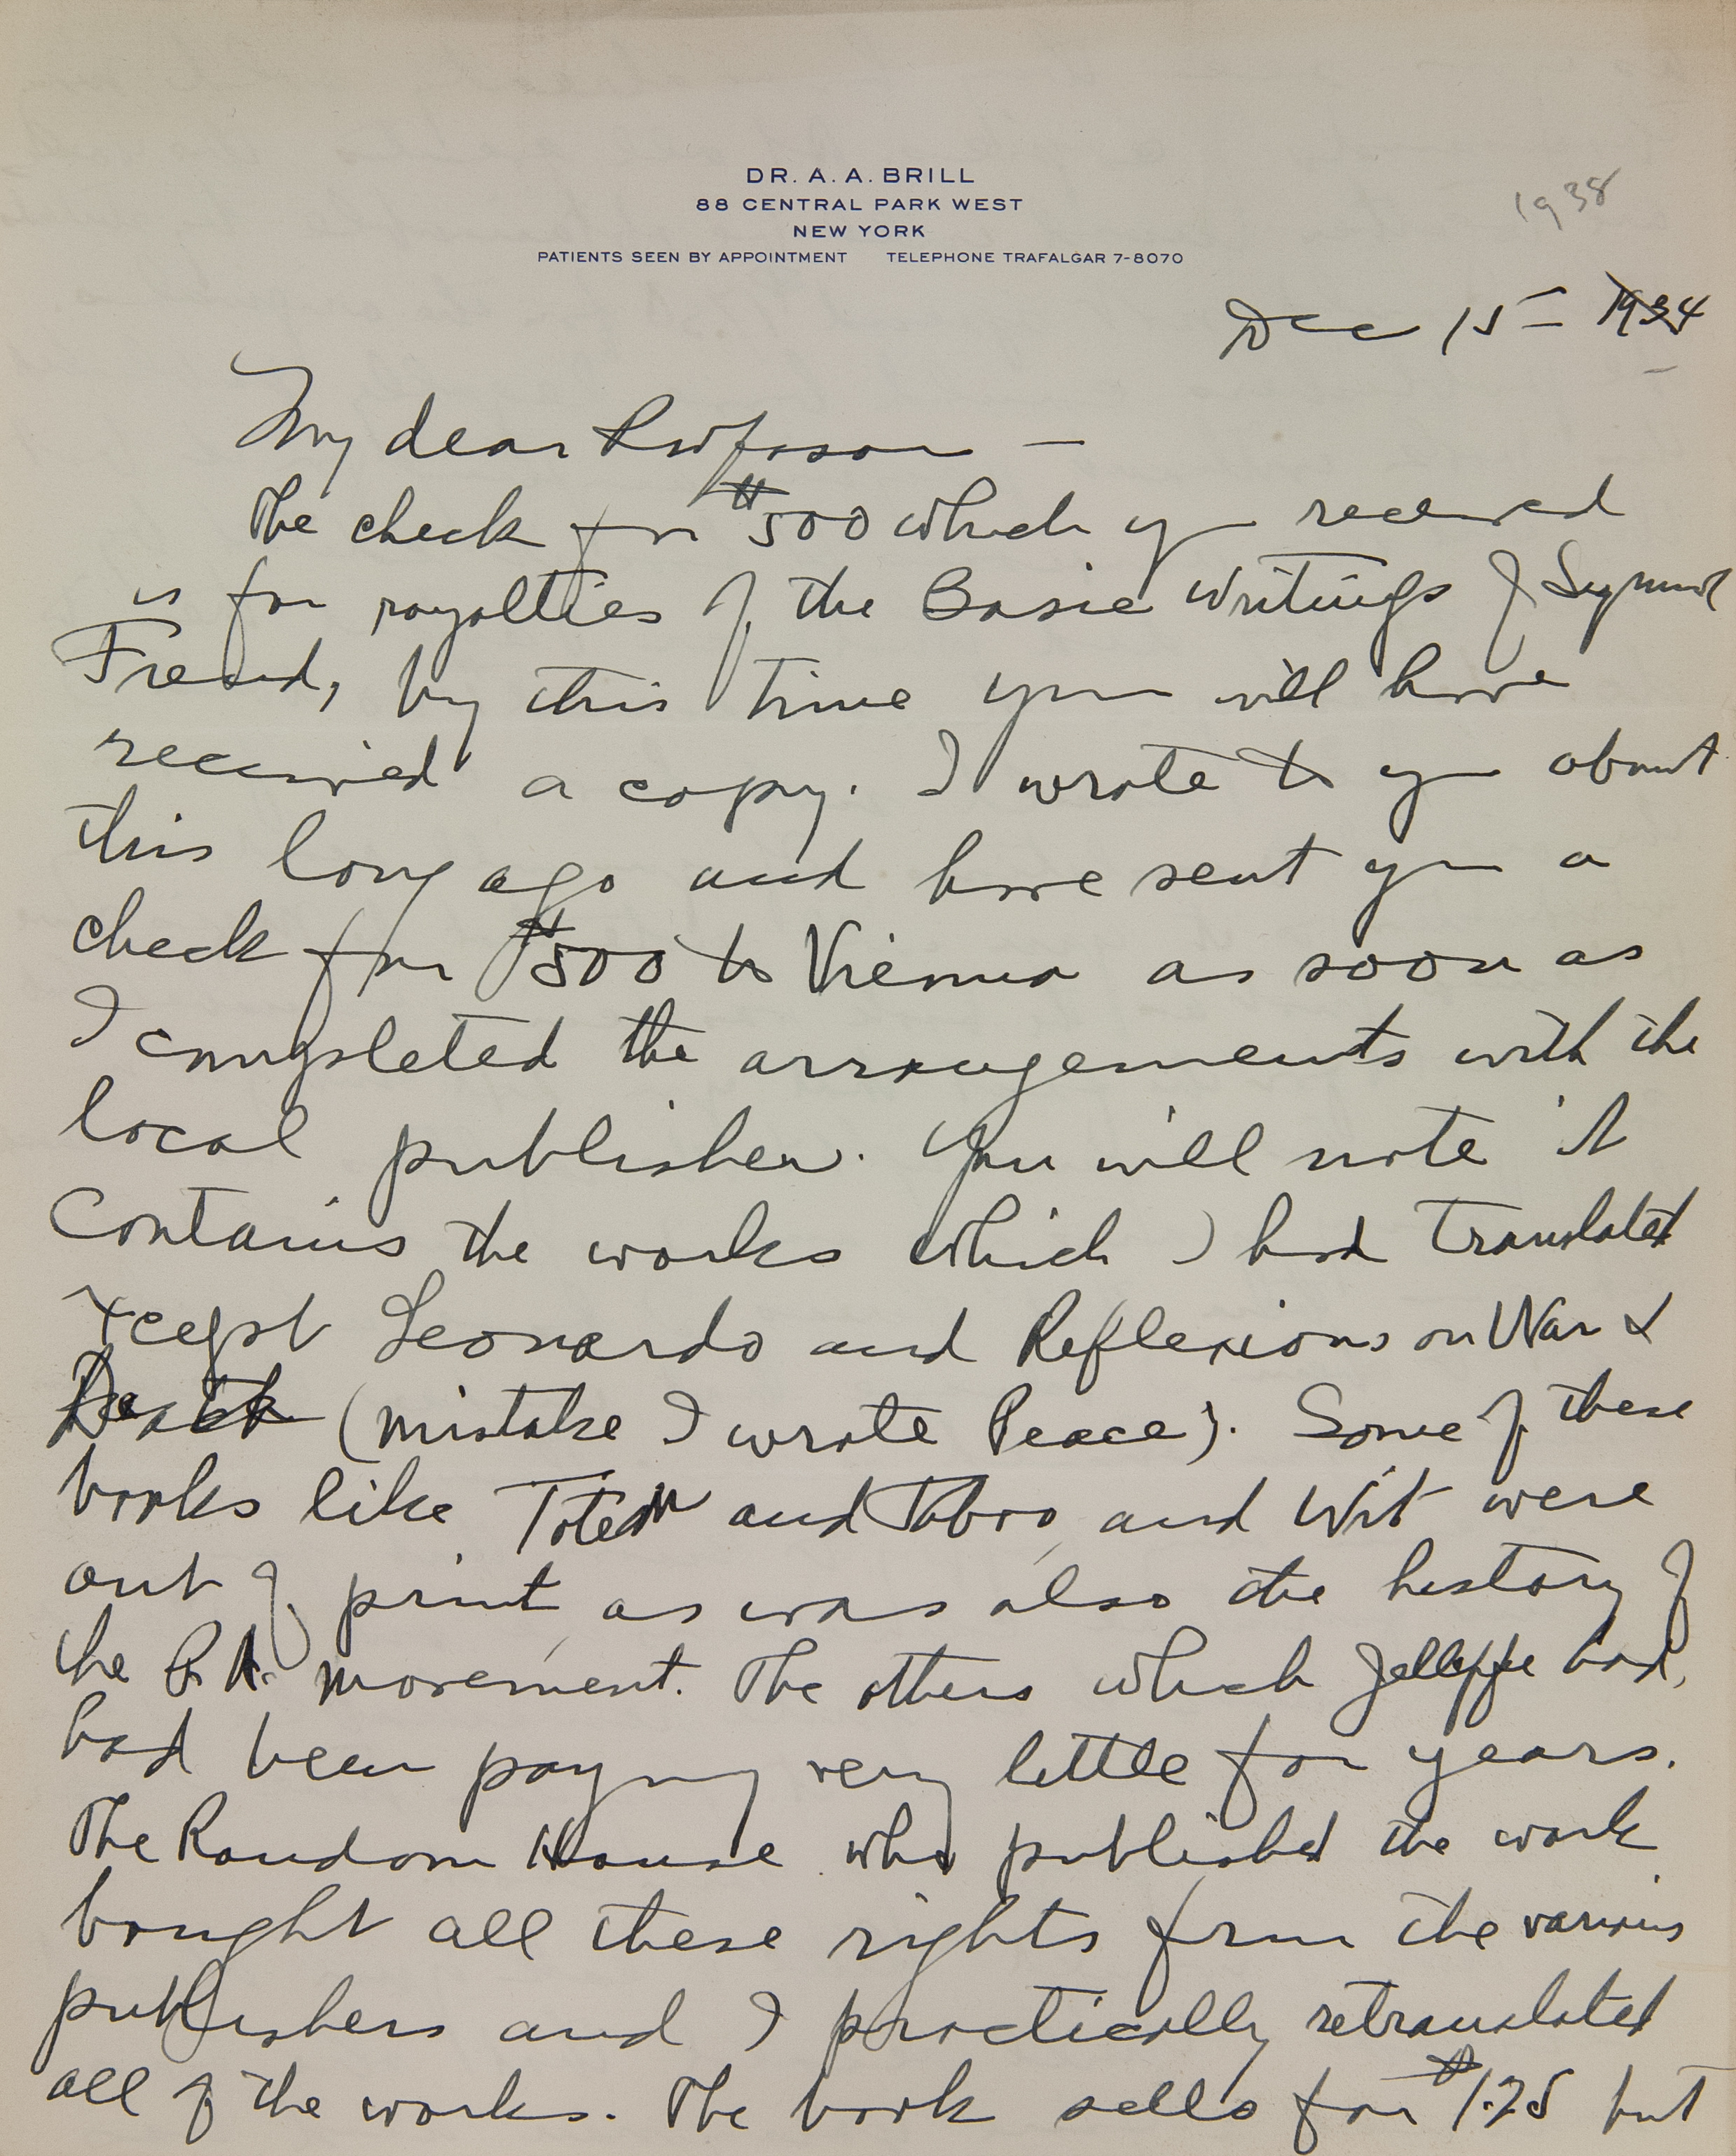 DR. A. A. BRILL
88 CENTRAL PARK WEST
NEW YORK
PATIENTS SEEN BY APPOINTMENT TELEPHONE TRAFALGAR 7-8070
1938
Dec 15 1934
My dear Professor —
The check for $500 which you received
is for royalties of the Basic Writings of Sigmund
Freud, by this time you will have
received a copy. I wrote to you about
this long ago and have sent you a
check for $500 to Vienna as soon as
I completed the arrangements with the
local publisher. You will note it
contains the works which I had translated
xcept Leonardo and Reflexions on War &
Death (mistake I wrote Peace). Some of these
books like Totem and Taboo, and Wit were
out of print, as was also the history of
the P.A. movement. The others which Jelliffe had,
had been paying very little for years.
The Random House who published the work
bought all these rights from the various
publishers and I practically retranslated
all of the works. The book sells for $1.25 but